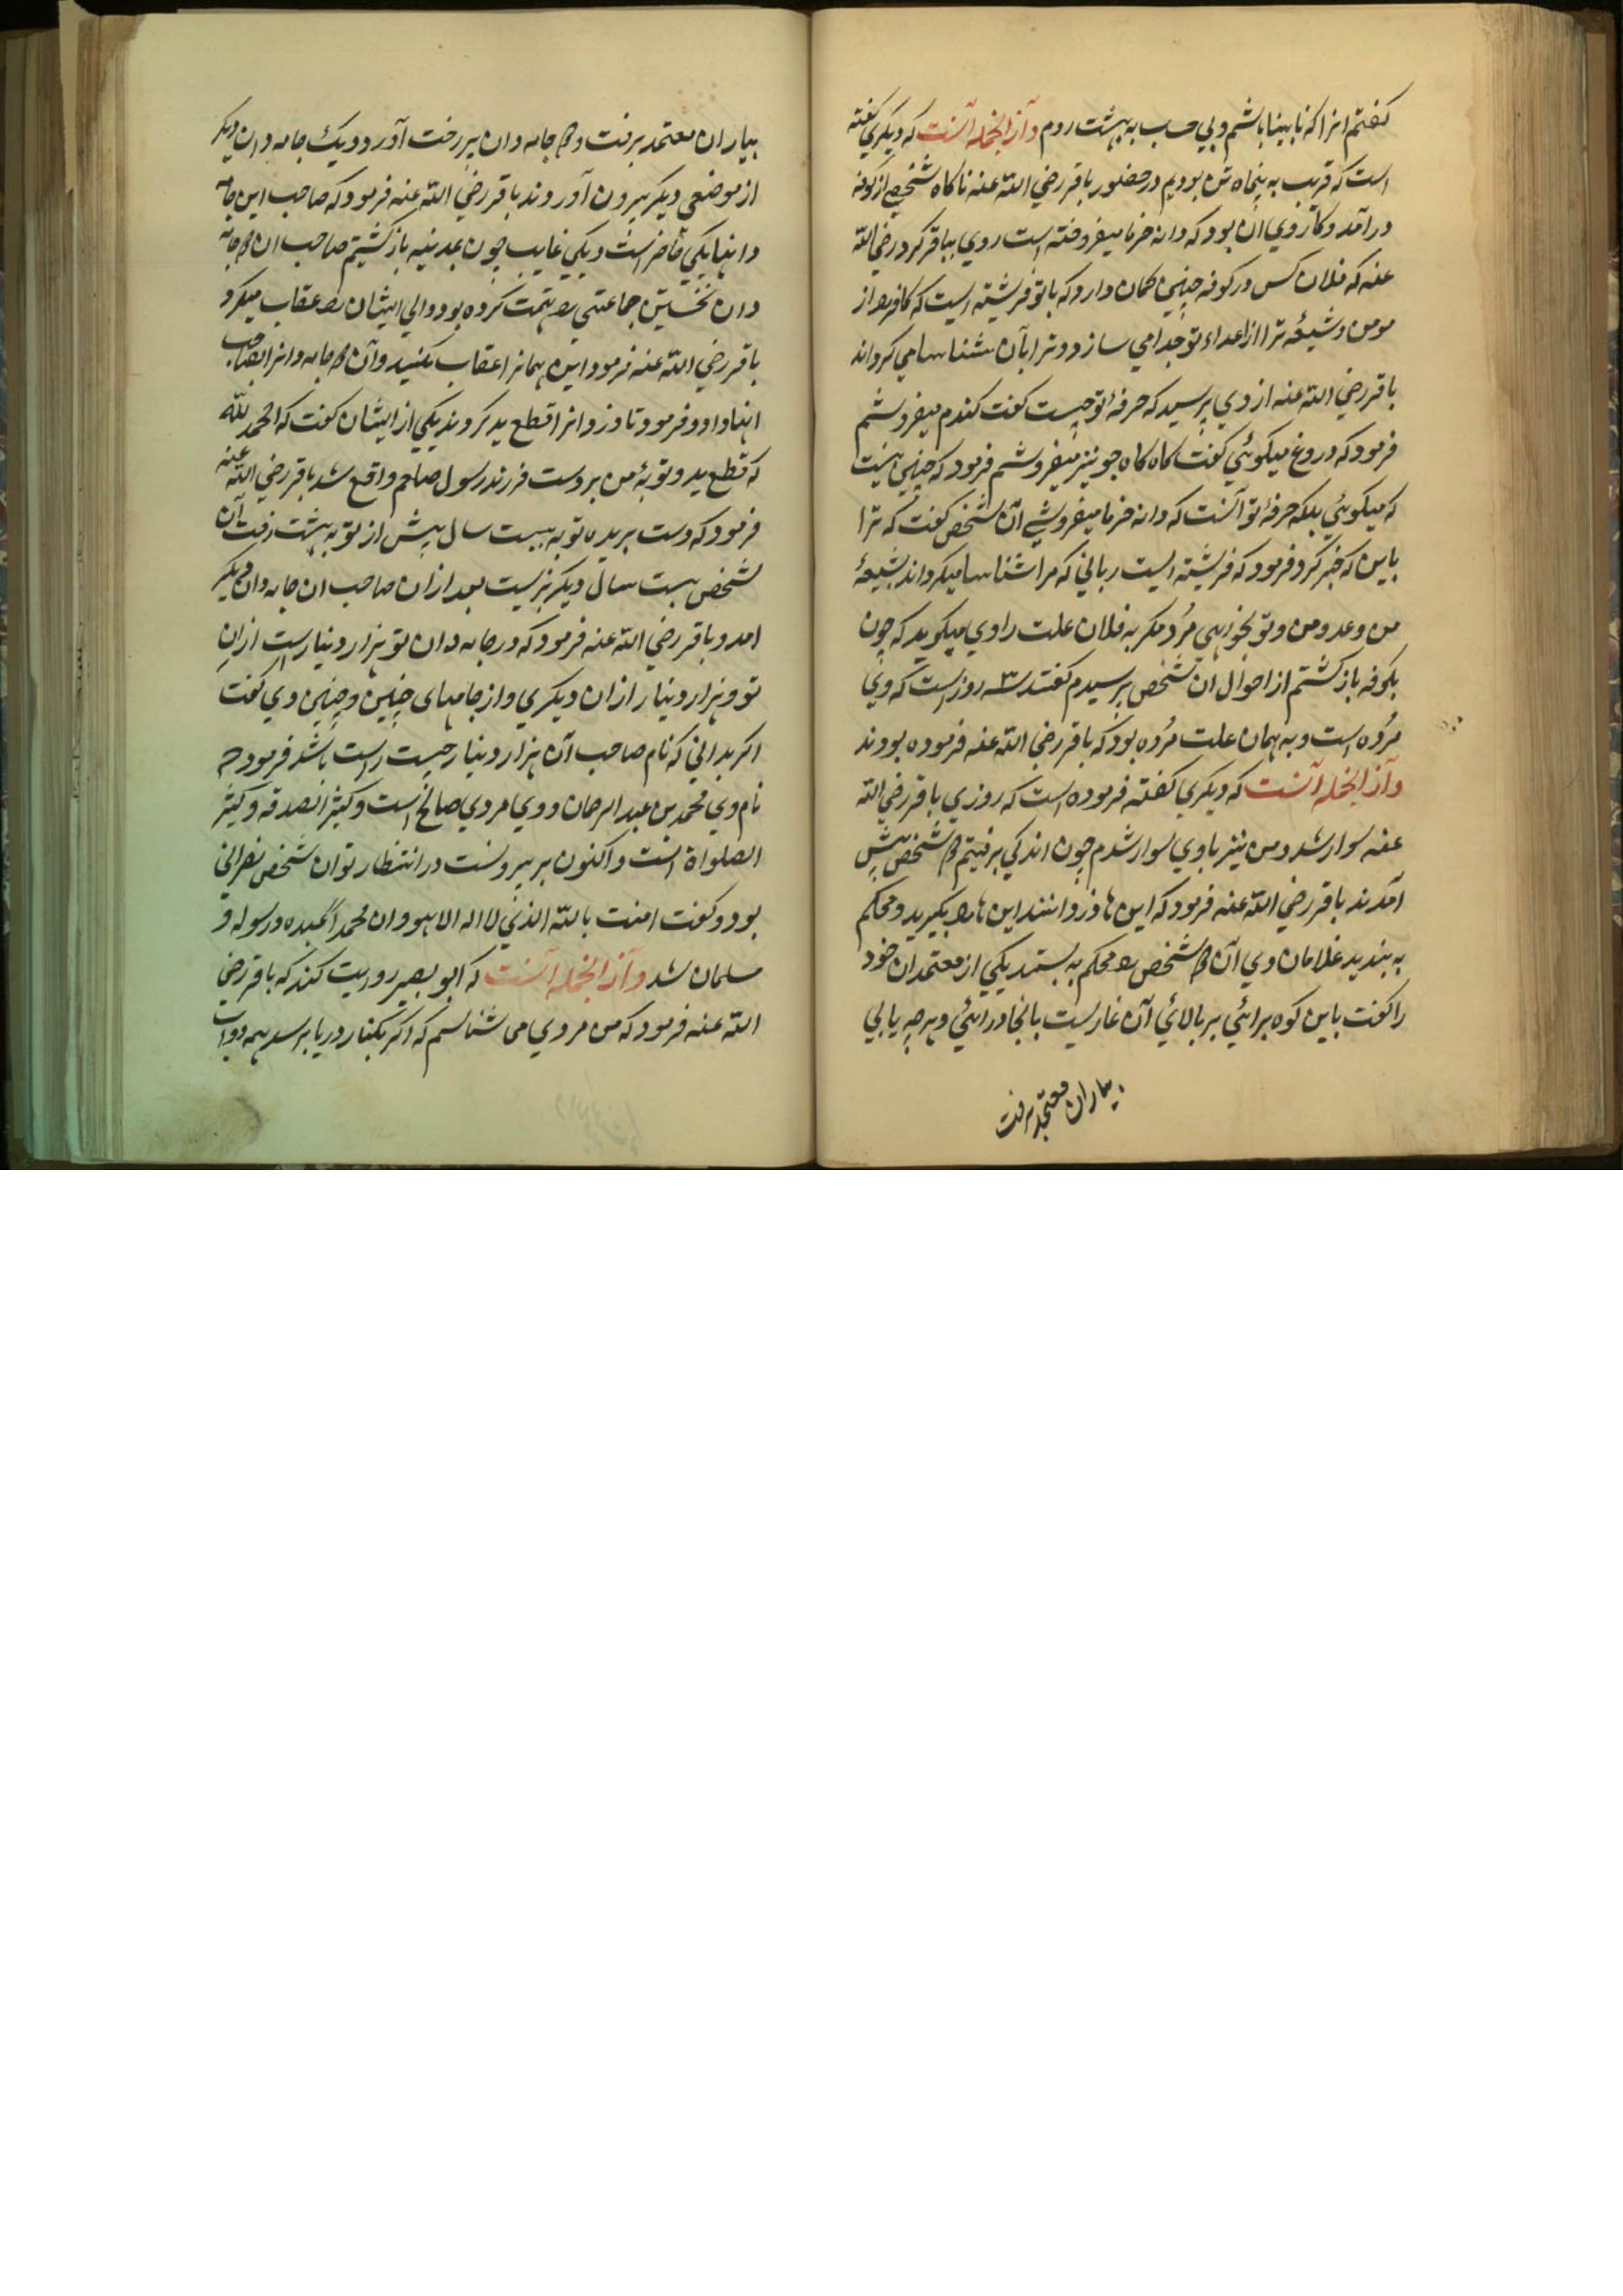 کفتم انرا که نابینا باشم و بی حساب به بهشت روم وآز انجمله آنست که دیکری کفته
است که قریب به پنجاه تن بودیم در حضور باقر رضی الله عنه ناکاه شخصی از کوفه
درآمد و کار وی ان بود که دانه خرما میفروخته است روی بباقر کرد رضی الله
عنه که فلان کس در کوفه چنین کمان دارد که با تو فرشته ایست که کافر را از
مومن و شیعهٔ ترا از اعداء تو جدا می سازد و ترا بآن شناسا می کرداند
باقر رضی الله عنه از وی پرسید که حرفهٔ تو چیست کفت کندم میفروشم
فرمود که دروغ میکوئی کفت کاه کاه جو نیز میفروشم فرمود که چنین نیست
که میکوئی بلکه حرفهٔ تو آنست که دانه خرما میفروشی آن شخص کفت که ترا
باین که خبر کرد فرمود که فرشته ایست ربانی که مرا شناسا میکرداند بشیعهٔ
من و عدو من و تو نخواهی مُرد مکر به فلان علت راوی میکوید که چون
بکوفه باز کشتم از احوال آن شخص پرسیدم کفتند سه روز است که وی
مُرده است و به همان علت مُرده بود که باقر رضی الله عنه فرموده بودند
وآز انجمله آنست که دیکری کفته فرموده است که روزی باقر رضی الله
عنه سوار شد و من نیز با وی سوار شدم چون اندکی برفتیم دو شخص پیش
آمدند باقر رضی الله عنه فرمود که این ها دزدانند این ها را بکیرید و محکم
به بندید غلامان وی آن دو شخص را محکم به بستند یکی از معتمدان خود
را کفت باین کوه برائی بر بالائی آن غاریست بانجا درائی و هرچه یابی
بیاران معتمد برفت
بیاران معتمد برفت و دو جامه دان پر رخت آورد و یک جامه دان دیکر
از موضعی دیکر بیرون آوردند باقر رضی الله عنه فرمود که صاحب این جامه
دانها یکی حاضر است و یکی غایب چون بمدینه باز کشتیم صاحب ان دو جامه
دان نخستین جماعتی را تهمت کرده بود و الی ایشان را عقاب میکرد
باقر رضی الله عنه فرمود اینهمانرا عقاب مکنید وآن دو جامه دانرا بصاحب
اینها داد و فرمود تا دزدانرا قطع ید کردند یکی از ایشان کفت که الحمد لله
که قطع ید و توبهٔ من بر دست فرزند رسول صلعم واقع شد باقر رضی الله عنه
فرمود که دست بریده تو به بیست سال پیش از تو به بهشت رفت آن
شخص بیست سال دیکر بزیست بعد ازان صاحب ان جامه دان دیکر
امد و باقر رضی الله عنه فرمود که در جامه دان تو هزار دینار است ازان
تو و هزار دینار ازان دیکری و از جامهای چنین و چنین وی کفت
اکر بدانی که نام صاحب آن هزار دینار چیست راست باشد فرمود که
نام وی محمد بن عبد الرحمان و وی مردی صالح است و کثیر الصدقه و کثیر
الصلواة است و اکنون بر بیرونست در انتظار تو ان شخص نصرانی
بود و کفت امنت بالله الذی لا اله الا هو و ان محمداً عبده و رسوله و
مسلمان شد وآز انجمله آنست که ابو بصیر روایت کند که باقر رضی
الله عنه فرمود که من مردی می شناسم که اکر بکنار دریا برسد همه دواب